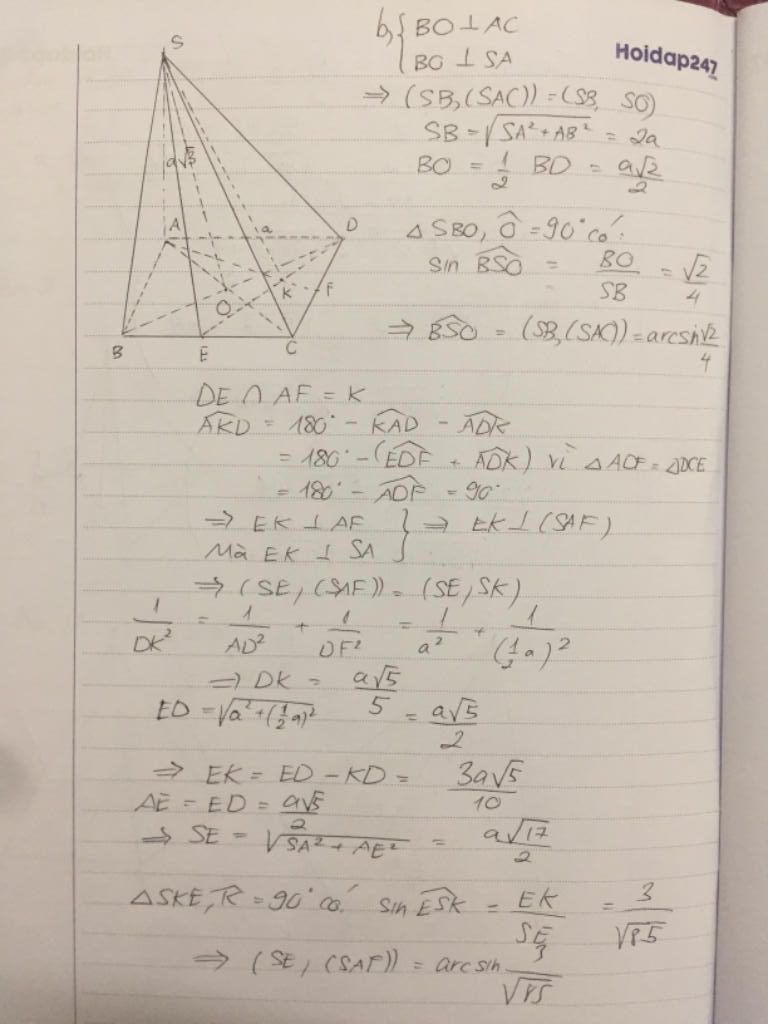 b, { BO ⊥ AC
{ BO ⊥ SA
Hoidap247
⇒ (SB, (SAC)) = (SB, SO)
SB = √(SA² + AB²) = 2a
BO = 1/2 BD = a√2/2
S
a√3
A
a
D
O
K
F
B
E
C
△ SBO, Ô = 90° có:
sin BSO = BO/SB = √2/4
⇒ BSO = (SB, (SAC)) = arcsin √2/4
DE ∩ AF = K
AKD = 180° - KAD - ADK
= 180° - (EDF + ADK) vì △ ADF = △DCE
= 180° - ADF = 90°
⇒ EK ⊥ AF } ⇒ EK ⊥ (SAF)
Mà EK ⊥ SA }
⇒ (SE, (SAF)) = (SE, SK)
1/DK² = 1/AD² + 1/DF² = 1/a² + 1/(1/2 a)²
⇒ DK = a√5/5
ED = √(a² + (1/2 a)²) = a√5/2
⇒ EK = ED - KD = 3a√5/10
AE = ED = a√5/2
⇒ SE = √(SA² + AE²) = a√17/2
△SKE, K̂ = 90° có: sin ESK = EK/SE = 3/√85
⇒ (SE, (SAF)) = arcsin 3/√85